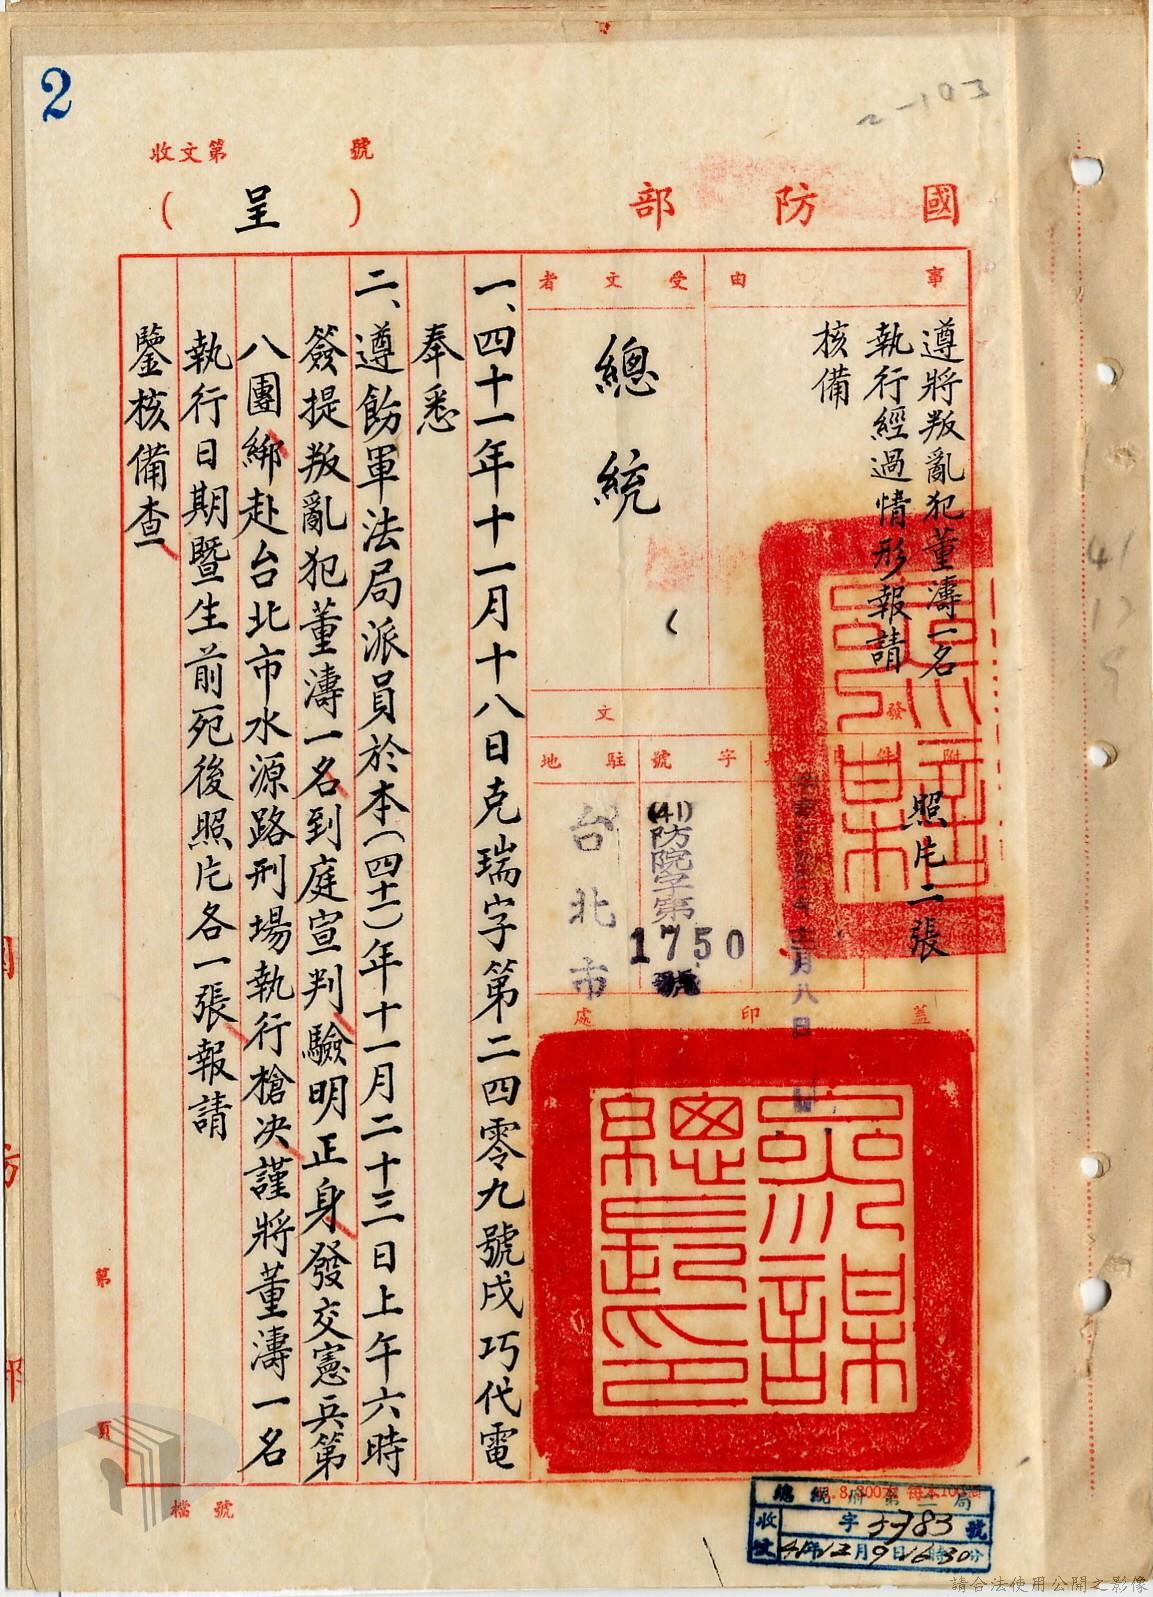 2
收文第　　　號
（呈）
國防部
事由
遵將叛亂犯董濤一名
執行經過情形報請
核備
受文者
總統
附件
照片二張
發文
字號
(41)防院字第
1750
號
駐地
台北市
十二月八日
蓋印處
參謀總長印
一、四十一年十一月十八日克瑞字第二四零九號戌巧代電
奉悉
二、遵飭軍法局派員於本（四十一）年十一月二十三日上午六時
簽提叛亂犯董濤一名到庭宣判驗明正身發交憲兵第
八團綁赴台北市水源路刑場執行槍決謹將董濤一名
執行日期暨生前死後照片各一張報請
鑒核備查
第　頁
檔號
總統府第二局
收文　字5783號
41年12月9日16時30分
請合法使用公開之影像